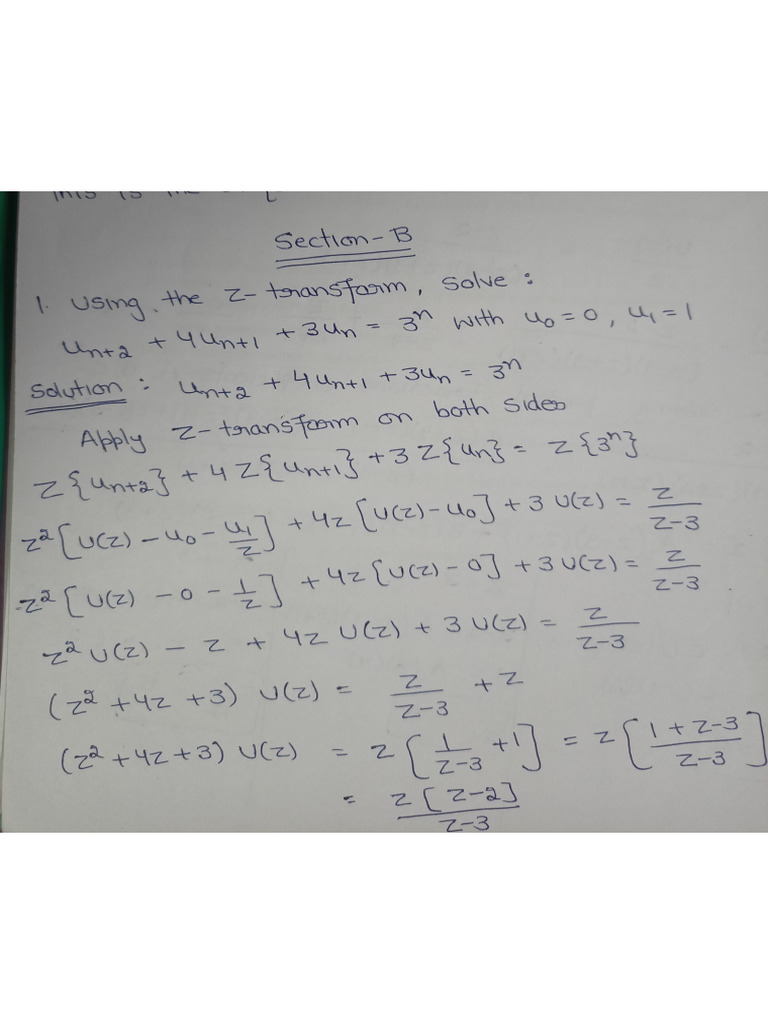 Section-B
1. Using the Z-transform, solve :
u_{n+2} + 4u_{n+1} + 3u_n = 3^n with u_0 = 0, u_1 = 1
Solution : u_{n+2} + 4u_{n+1} + 3u_n = 3^n
Apply Z-transform on both sides
Z{u_{n+2}} + 4Z{u_{n+1}} + 3Z{u_n} = Z{3^n}
z^2[U(z) - u_0 - u_1/z] + 4z[U(z) - u_0] + 3U(z) = z/(z-3)
z^2[U(z) - 0 - 1/z] + 4z[U(z) - 0] + 3U(z) = z/(z-3)
z^2 U(z) - z + 4z U(z) + 3U(z) = z/(z-3)
(z^2 + 4z + 3) U(z) = z/(z-3) + z
(z^2 + 4z + 3) U(z) = z[1/(z-3) + 1] = z[(1+z-3)/(z-3)]
= z[z-2]/(z-3)